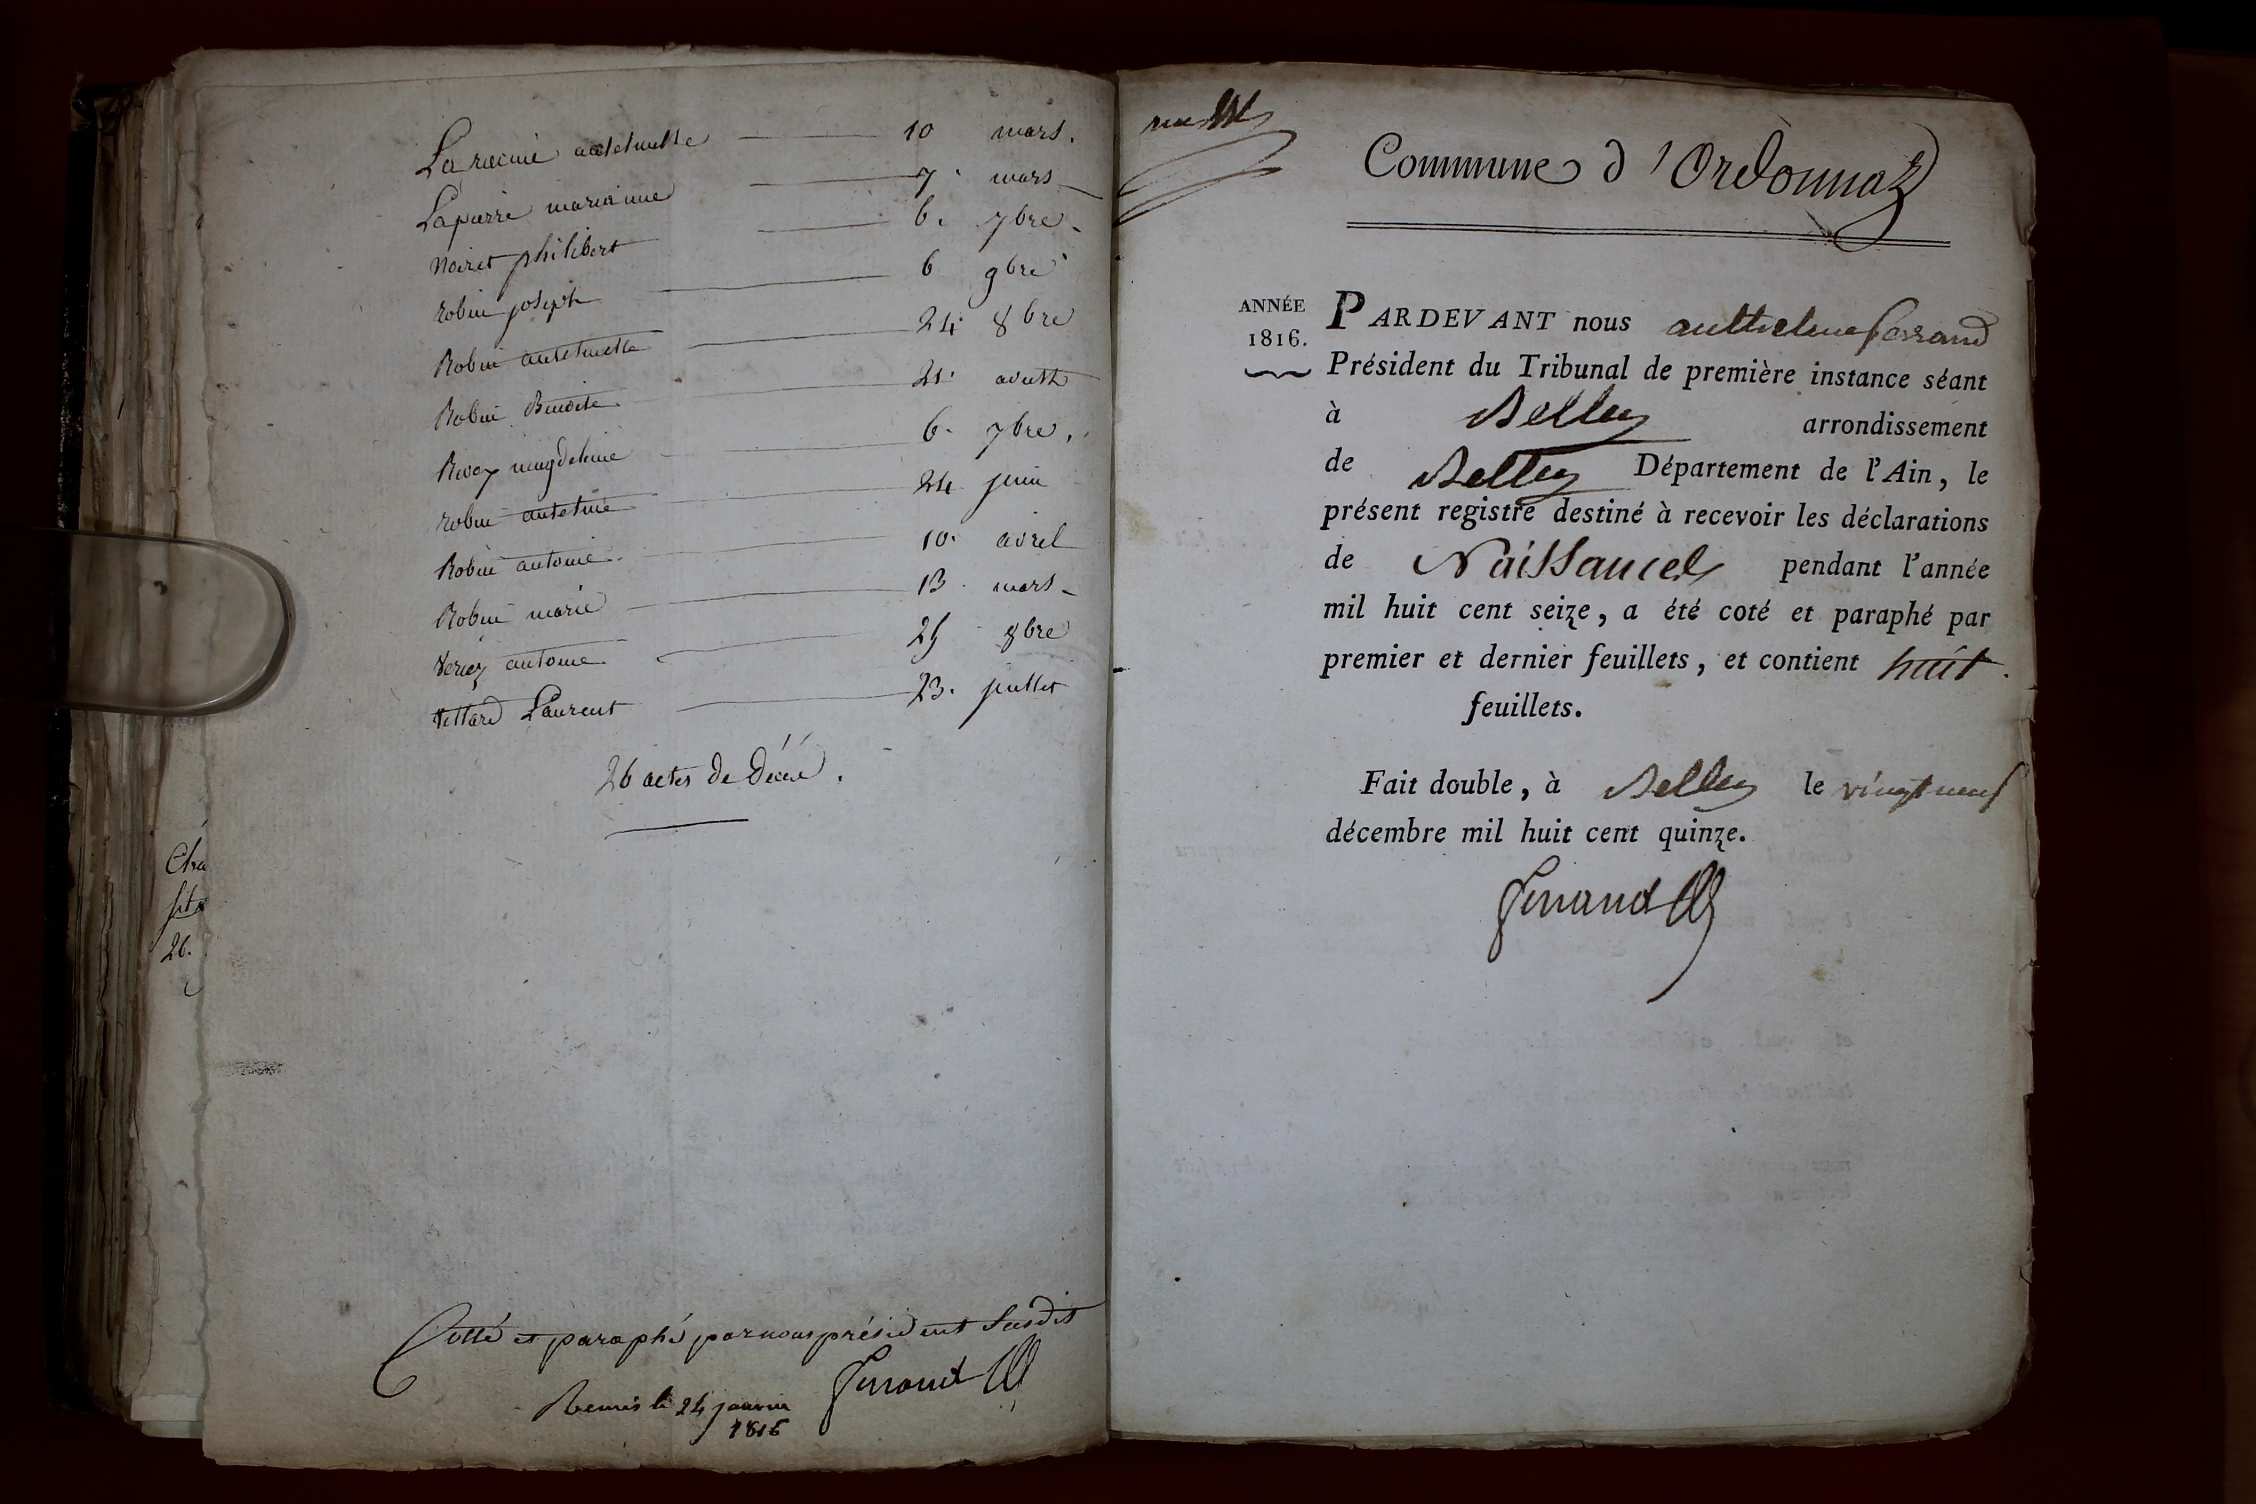 Laracine antelmette 10 mars.
Lapierre marianne 7. mars
Noiret philibert 6. 7bre.
robin joseph 6 9bre
Robin antelmette 24. 8bre
Robin Benoite 21. avust
Rivoy magdeleine 6. 7bre.
robin antelme 24 juin
Robin antoine 10. avril
Robin marie 13. mars
antoine 25 8bre
Laurent 23. juillet
26 actes de Décé.
Cotté et paraphé par nous président Susdit
Ferrand
Remis le 24 janvier
1816
Cha
26.
Commune d'Ordonnaz
ANNÉE
1816.
PARDEVANT nous anthelme ferrand
Président du Tribunal de première instance séant
à Belley arrondissement
de Belley Département de l'Ain, le
présent registre destiné à recevoir les déclarations
de Naissances pendant l'année
mil huit cent seize, a été coté et paraphé par
premier et dernier feuillets, et contient huit
feuillets.
Fait double, à Belley le vingt neuf
décembre mil huit cent quinze.
Ferrand